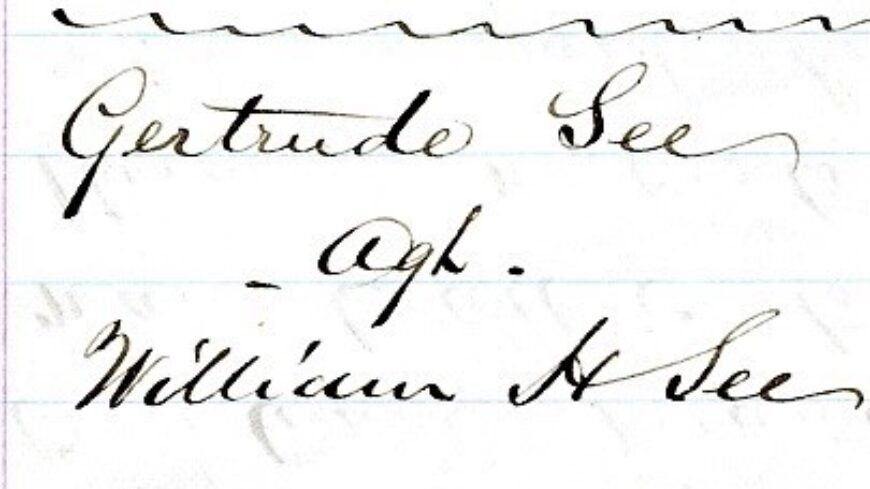 Gertrude See
- Agt.
William H See